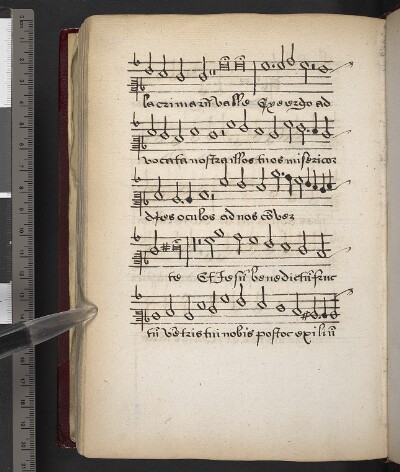 lacrimarū valle Eya ergo ad
vocata nostra illos tuos misericor
dies oculos ad nos cōver
te Et Jesū benedictū fruc
tū vētris tui nobis post oc exiliū